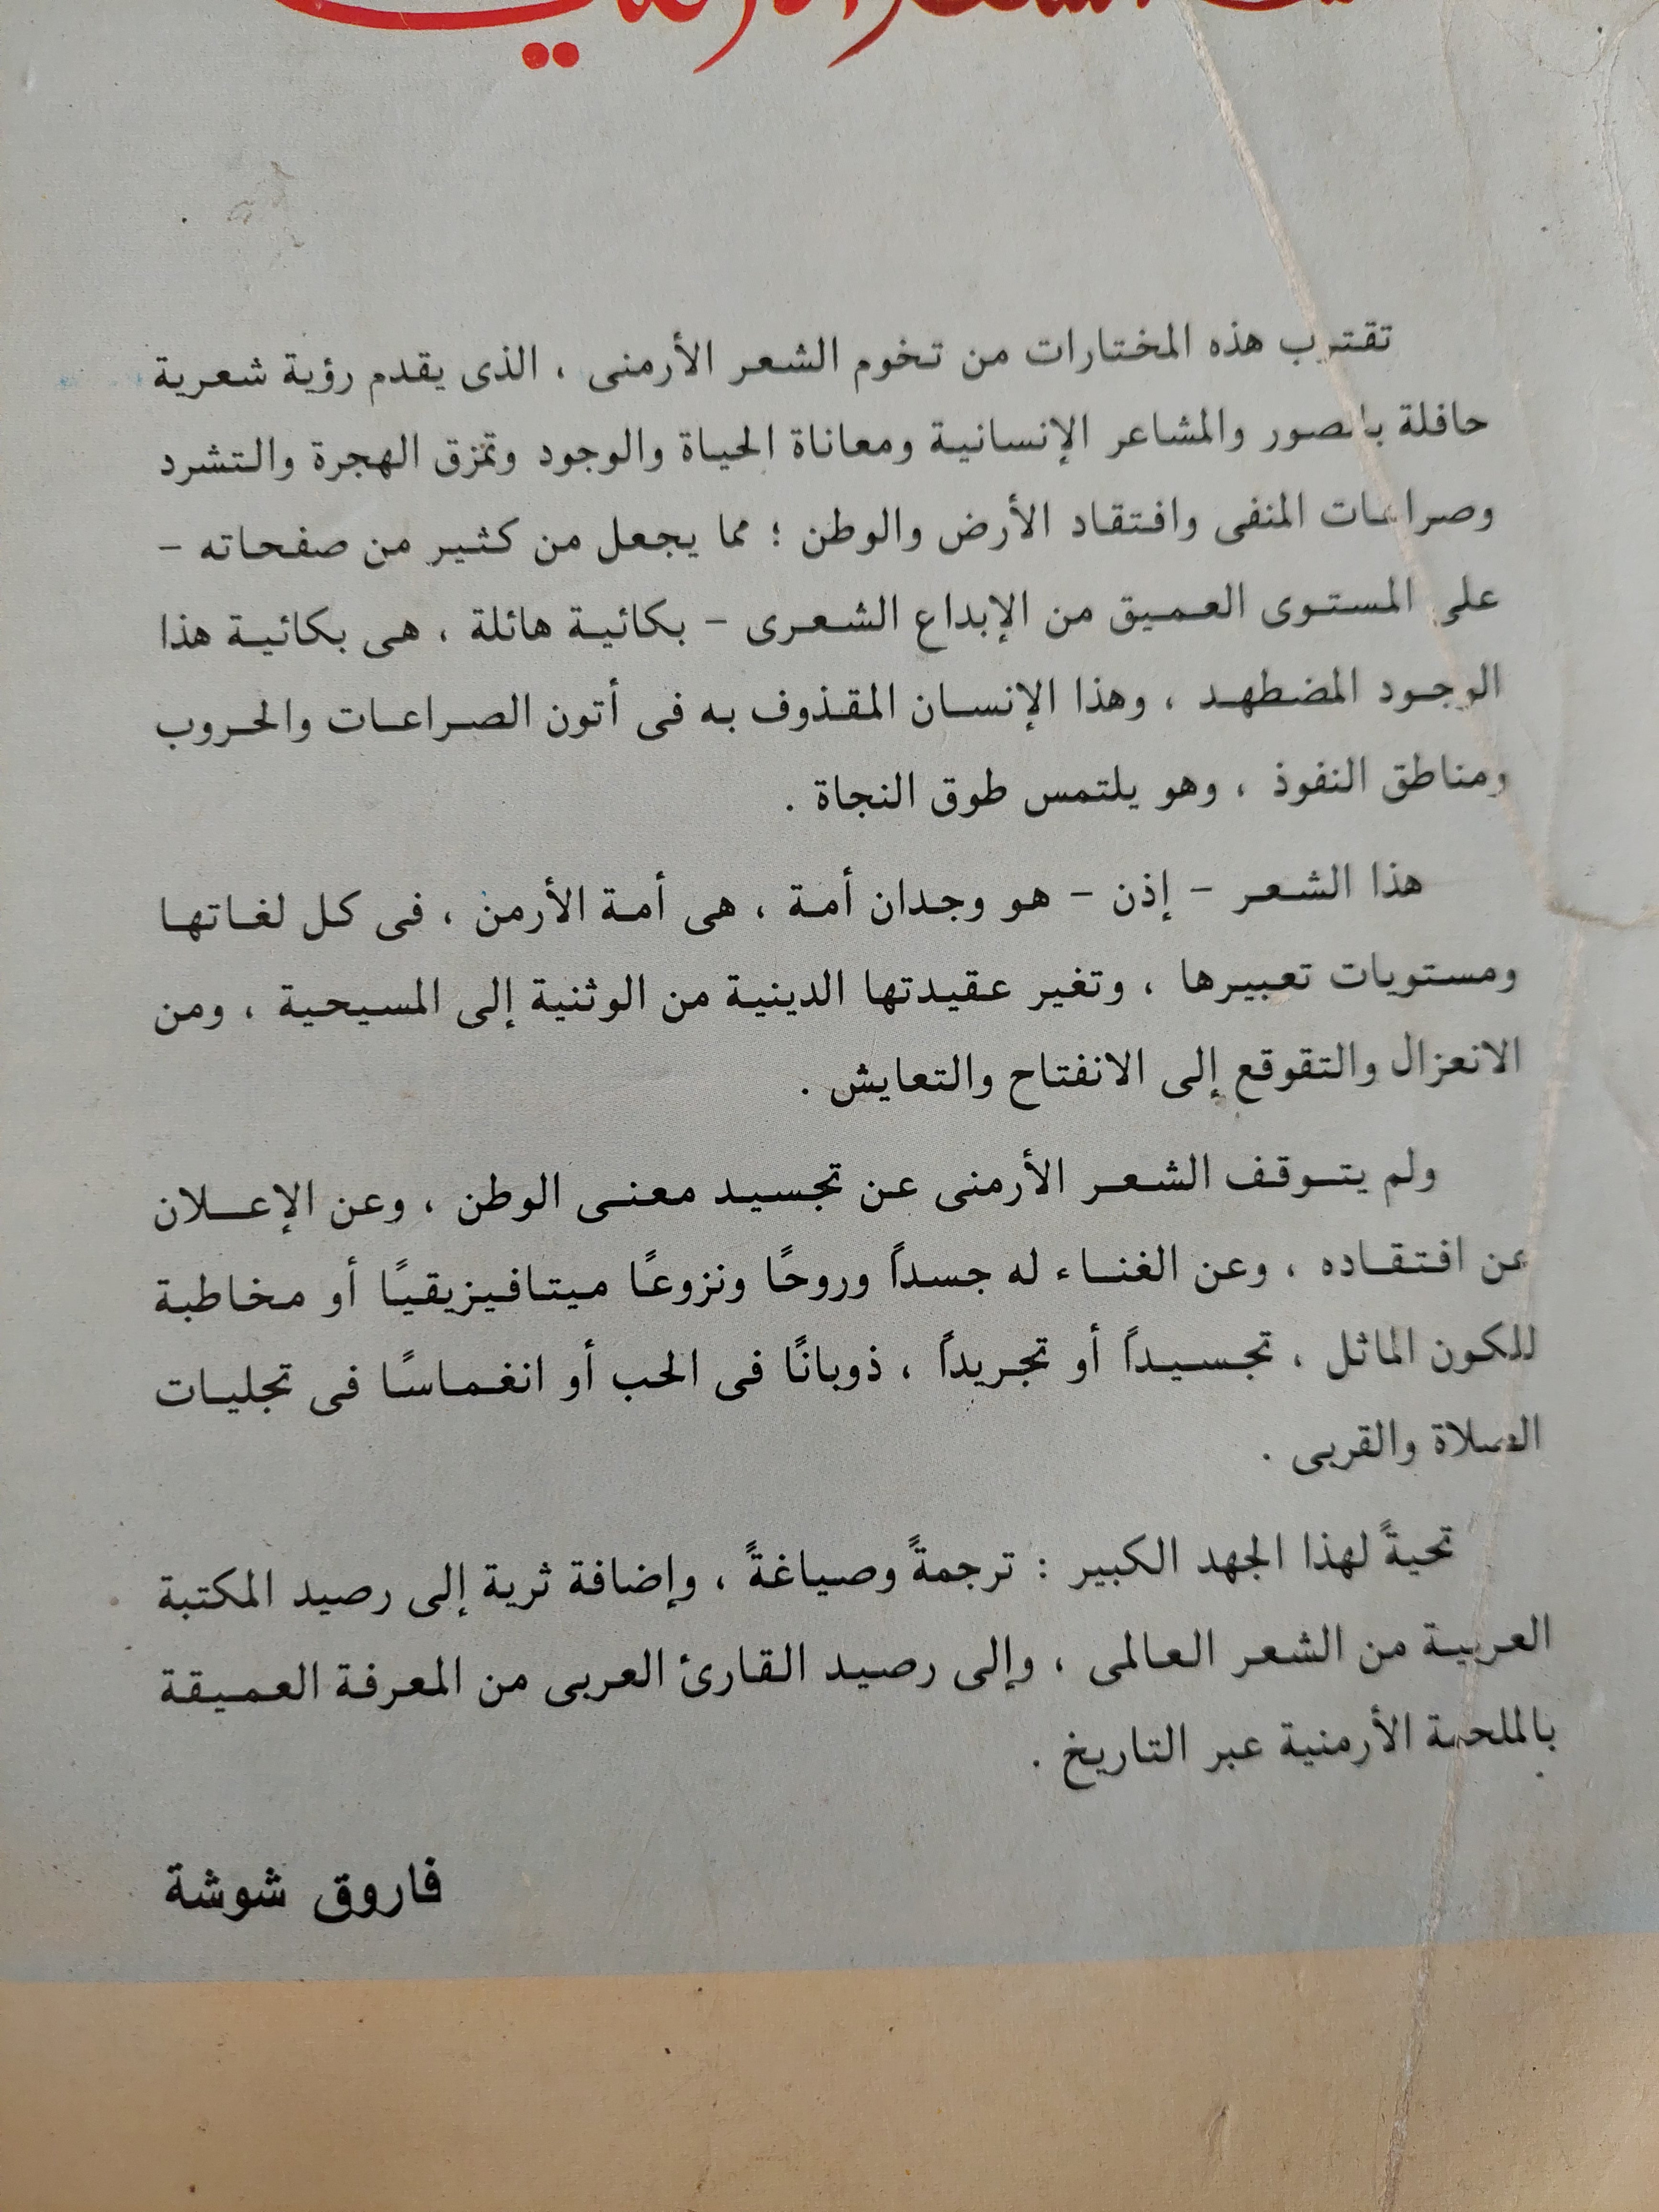 تقترب هذه المختارات من تخوم الشعر الأرمنى ، الذى يقدم رؤية شعرية
حافلة بالصور والمشاعر الإنسانية ومعاناة الحياة والوجود وتمزق الهجرة والتشرد
وصراعات المنفى وافتقاد الأرض والوطن ؛ مما يجعل من كثير من صفحاته –
على المستوى العميق من الإبداع الشعرى – بكائية هائلة ، هى بكائية هذا
الوجود المضطهد ، وهذا الإنسان المقذوف به فى أتون الصراعات والحروب
ومناطق النفوذ ، وهو يلتمس طوق النجاة .
هذا الشعر – إذن – هو وجدان أمة ، هى أمة الأرمن ، فى كل لغاتها
ومستويات تعبيرها ، وتغير عقيدتها الدينية من الوثنية إلى المسيحية ، ومن
الانعزال والتقوقع إلى الانفتاح والتعايش .
ولم يتوقف الشعر الأرمنى عن تجسيد معنى الوطن ، وعن الإعلان
عن افتقاده ، وعن الغناء له جسداً وروحًا ونزوعًا ميتافيزيقيًا أو مخاطبة
للكون الماثل ، تجسيداً أو تجريداً ، ذوبانًا فى الحب أو انغماسًا فى تجليات
الصلاة والقربى .
تحيةً لهذا الجهد الكبير : ترجمةً وصياغةً ، وإضافة ثرية إلى رصيد المكتبة
العربية من الشعر العالمى ، وإلى رصيد القارئ العربى من المعرفة العميقة
بالملحمة الأرمنية عبر التاريخ .
فاروق شوشة